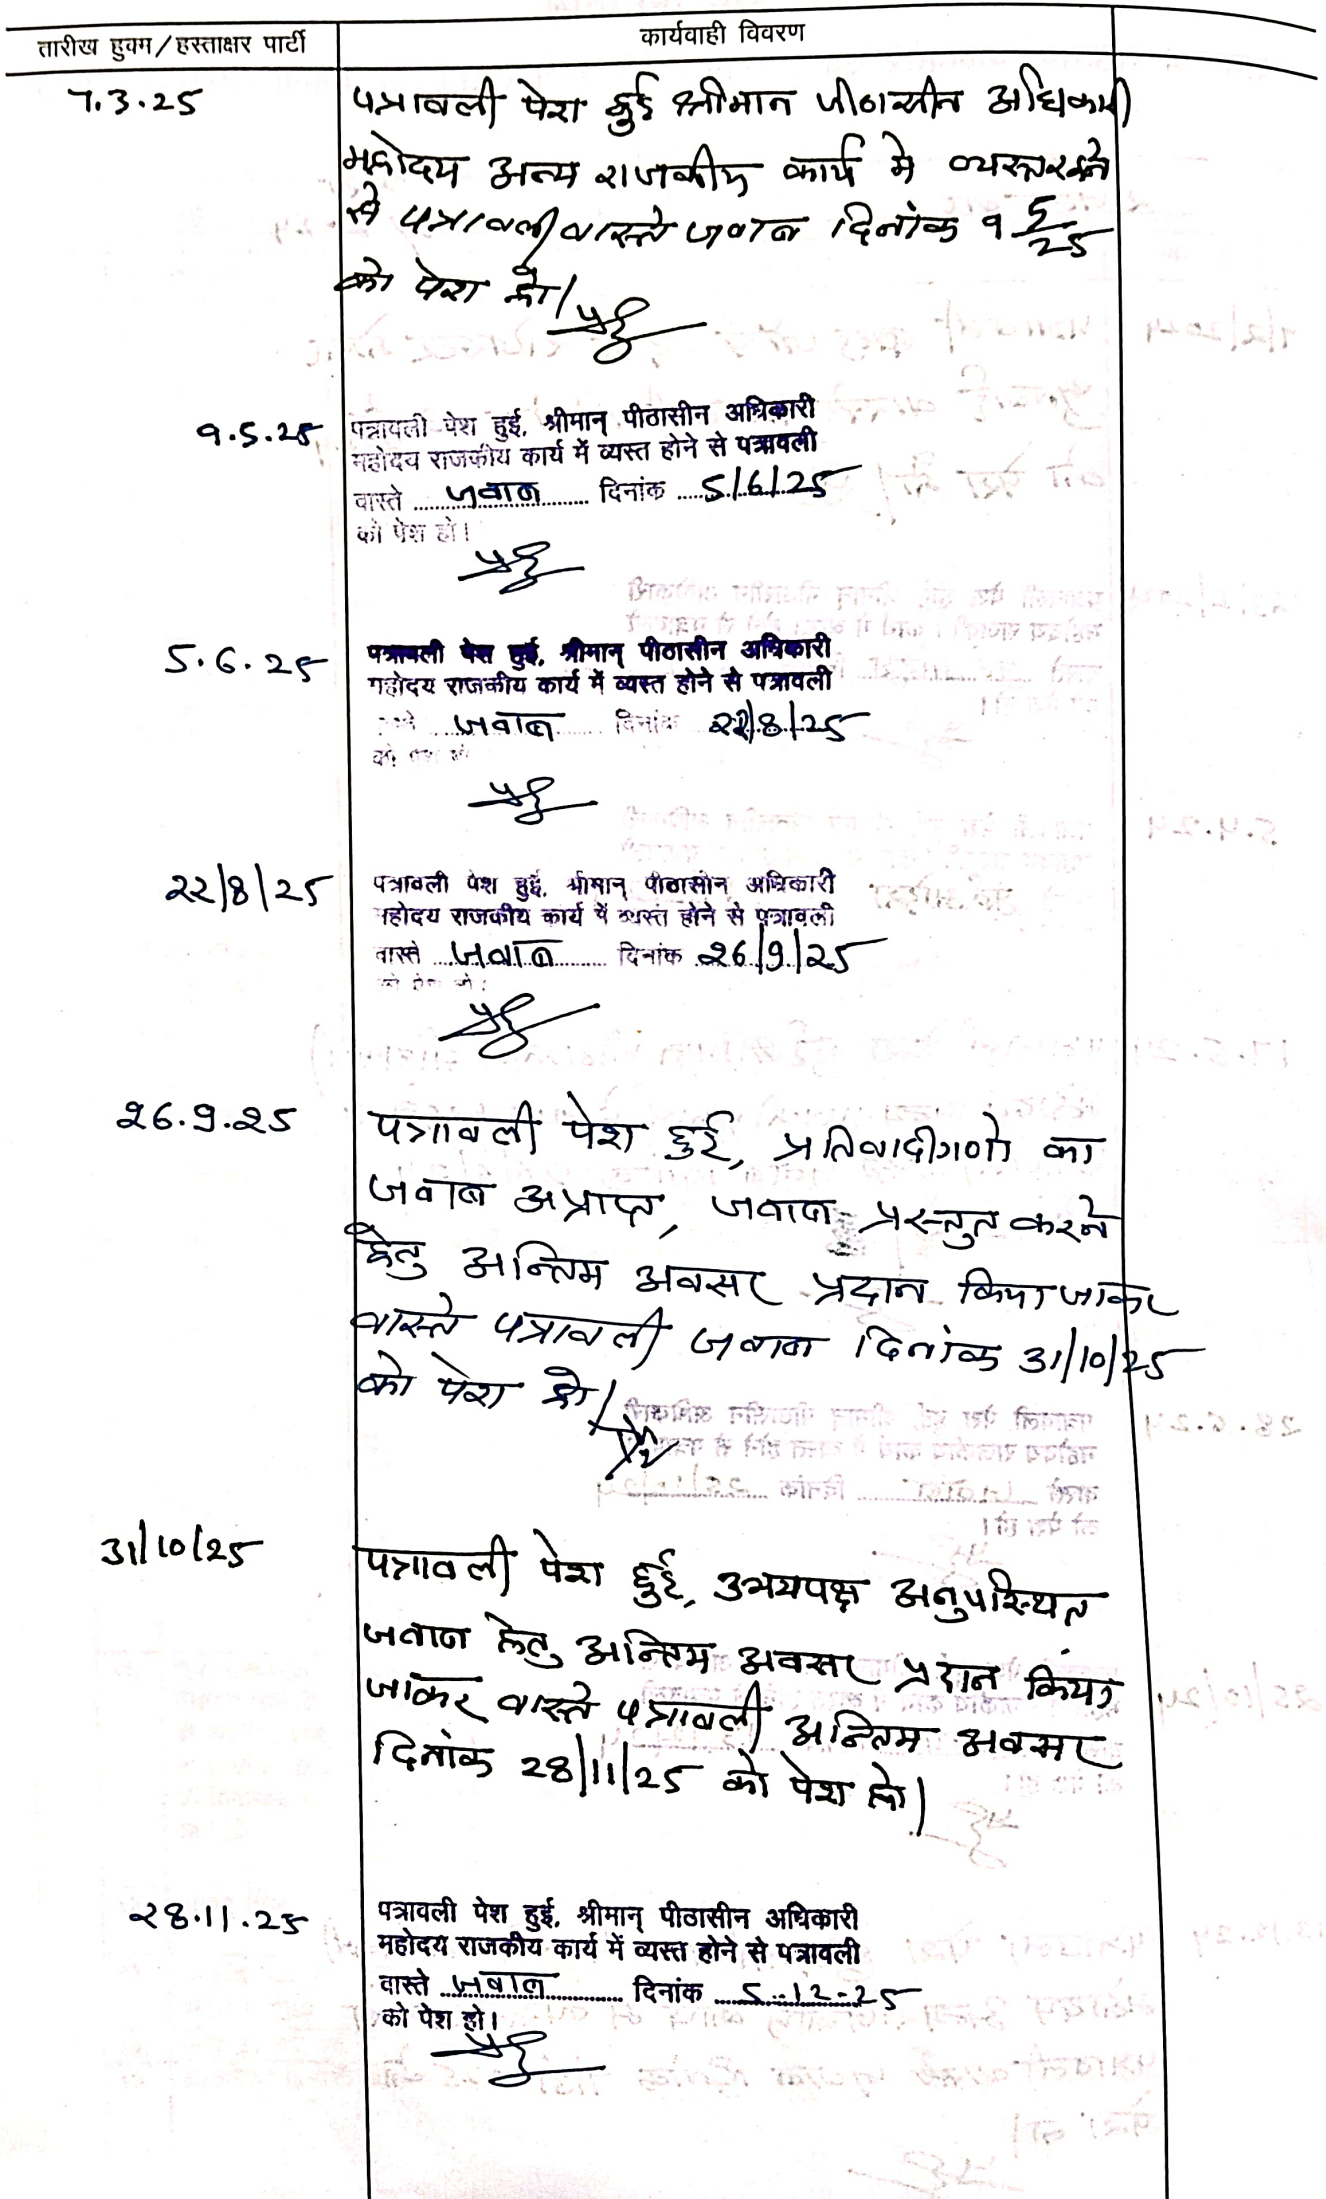 तारीख हुक्म/हस्ताक्षर पार्टी
कार्यवाही विवरण
7.3.25
पत्रावली पेश हुई श्रीमान पीठासीन अधिकारी
महोदय अन्य राजकीय कार्य मे व्यस्त होने
से पत्रावली वास्ते जवाब दिनांक 9 5/25
को पेश हो।
9.5.25
पत्रावली पेश हुई, श्रीमान् पीठासीन अधिकारी
महोदय राजकीय कार्य में व्यस्त होने से पत्रावली
वास्ते जवाब दिनांक 5/6/25
को पेश हो।
5.6.25
पत्रावली पेश हुई, श्रीमान् पीठासीन अधिकारी
महोदय राजकीय कार्य में व्यस्त होने से पत्रावली
जवाब दिनांक 22/8/25
को पेश हो
22/8/25
पत्रावली पेश हुई, श्रीमान् पीठासीन अधिकारी
महोदय राजकीय कार्य में व्यस्त होने से पत्रावली
वास्ते जवाब दिनांक 26/9/25
को पेश हो।
26.9.25
पत्रावली पेश हुई, प्रतिवादीगणो का
जवाब अप्राप्त, जवाब प्रस्तुत करने
हेतु अन्तिम अवसर प्रदान किया जाकर
वास्ते पत्रावली जवाब दिनांक 31/10/25
को पेश हो।
31/10/25
पत्रावली पेश हुई, उभयपक्ष अनुपस्थित
जवाब हेतु अन्तिम अवसर प्रदान किया
जाकर वास्ते पत्रावली अन्तिम अवसर
दिनांक 28/11/25 को पेश हो।
28.11.25
पत्रावली पेश हुई, श्रीमान् पीठासीन अधिकारी
महोदय राजकीय कार्य में व्यस्त होने से पत्रावली
वास्ते जवाब दिनांक 5-12-25
को पेश हो।